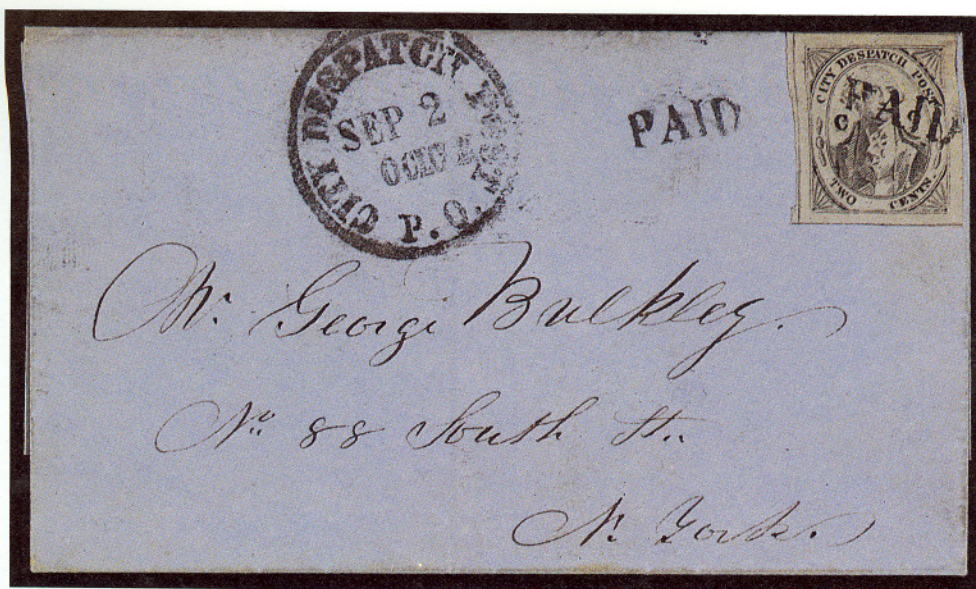 CITY DESPATCH POST
SEP 2
P. O.
PAID
CITY DESPATCH POST
C
PAID
TWO CENTS.
Mr. George Bulkley.
No. 88 South St.
N. York.